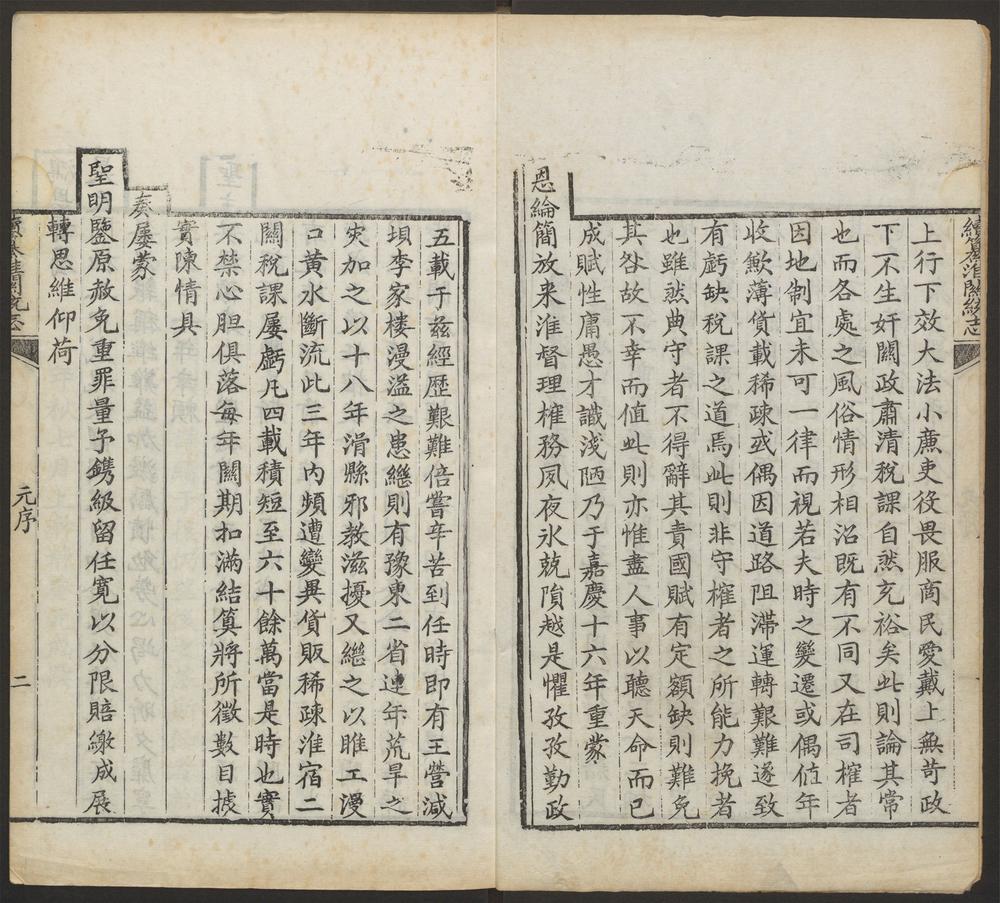 續纂淮關統志
上行下效大法小廉吏役畏服商民愛戴上無苛政
下不生奸關政肅清稅課自然充裕矣此則論其常
也而各處之風俗情形相沿既有不同又在司榷者
因地制宜未可一律而視若夫時之變遷或偶值年
收歉薄貨載稀疎或偶因道路阻滯運轉艱難遂致
有虧缺稅課之道焉此則非守榷者之所能力挽者
也雖然典守者不得辭其責國賦有定額缺則難免
其咎故不幸而值此則亦惟盡人事以聽天命而已
成賦性庸愚才識淺陋乃于嘉慶十六年重蒙
恩綸簡放來淮督理榷務夙夜氷兢隕越是懼孜孜勤政
五載于茲經歷艱難倍嘗辛苦到任時即有王營減
壩李家樓漫溢之患繼則有豫東二省連年荒旱之
灾加之以十八年滑縣邪教滋擾又繼之以睢工漫
口黃水斷流此三年內頻遭變異貨販稀疎淮宿二
關稅課屢虧凡四載積短至六十餘萬當是時也實
不禁心胆俱落每年關期扣滿結算將所徵數目據
實陳情具
奏屢蒙
聖明鑒原赦免重罪量予鐫級留任寬以分限賠繳成展
轉思維仰荷
元序
二